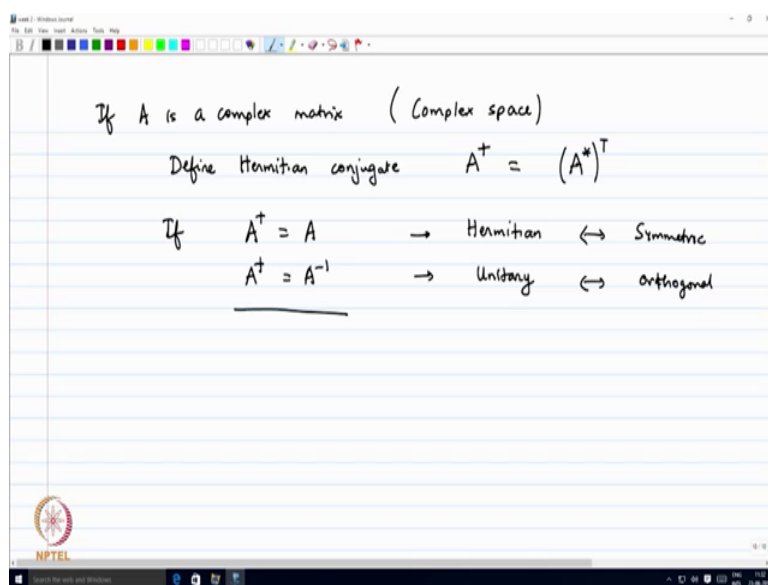 week 2 - Windows Journal
File Edit View Insert Actions Tools Help
If A is a complex matrix (Complex space)
Define Hermitian conjugate A† = (A*)ᵀ
If A† = A → Hermitian ↔ Symmetric
A† = A⁻¹ → Unitary ↔ Orthogonal
NPTEL
Search the web and Windows